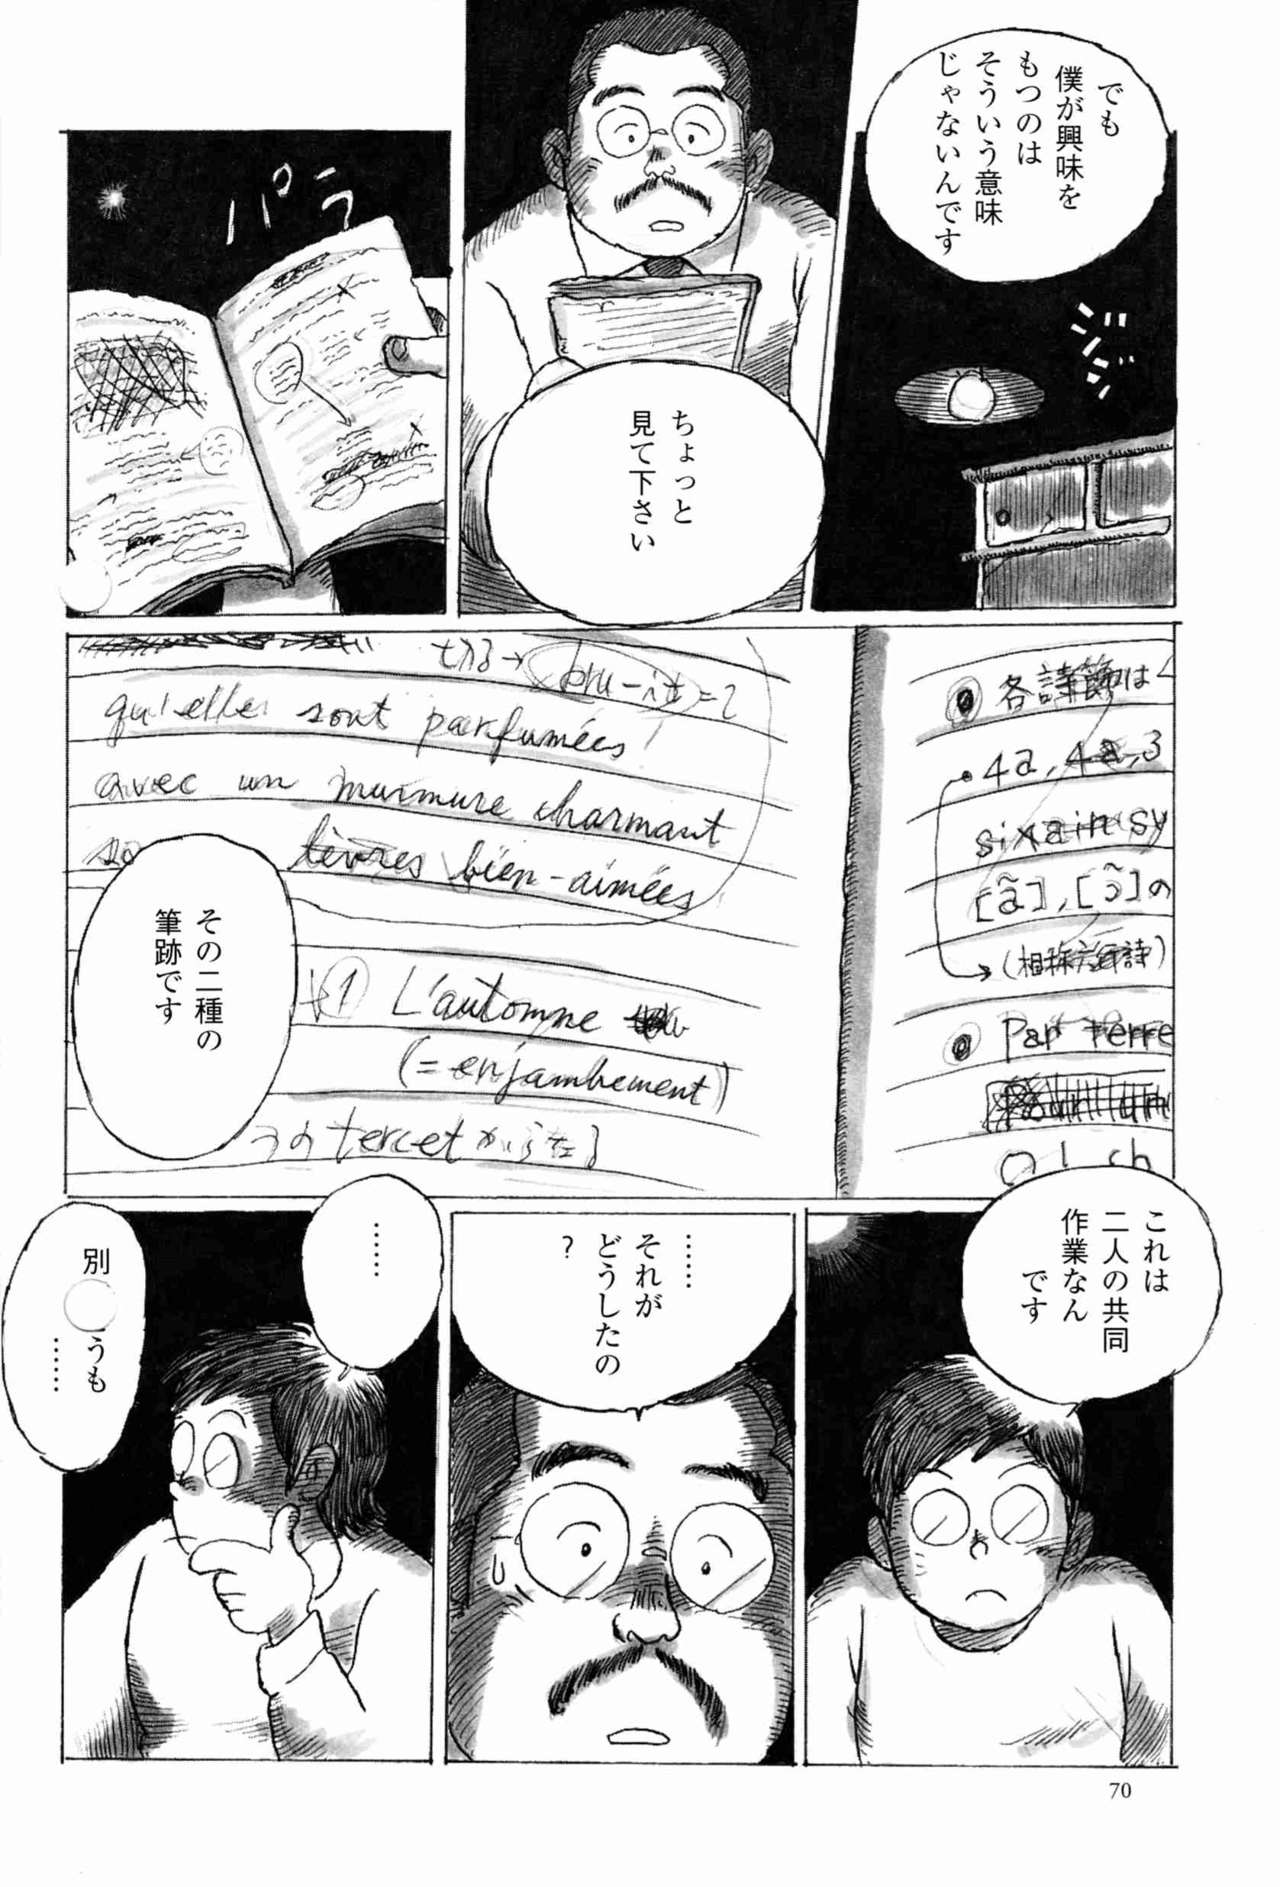 でも
僕が興味を
もつのは
そういう意味
じゃないんです
ジジ
ちょっと
見て下さい
パラ
各詩節は
4a, 4a, 3
sixain sy
[ã], [ɔ̃]の
(相称六行詩)
Par terre
qu'elles sont parfumées
avec un murmure charmant
lèvres bien-aimées
① L'automne
(=enjambement)
つの tercet からなる
その二種の
筆跡です
これは
二人の共同
作業なん
です
……
それが
どうしたの
?
……
別
うも
……
70